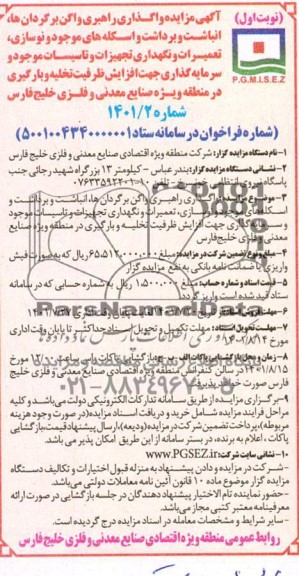 (نوبت اول)
P.G.M.I.S.E.Z
آگهی مزایده واگذاری راهبری واگن برگردان ها،
انباشت و برداشت و اسکله های موجود و نوسازی،
تعمیرات و نگهداری تجهیزات و تاسیسات موجود و
سرمایه گذاری جهت افزایش ظرفیت تخلیه و بارگیری
در منطقه ویژه صنایع معدنی و فلزی خلیج فارس
شماره ۱۴۰۱/۲
(شماره فراخوان در سامانه ستاد ۵۰۰۱۰۰۴۳۴۰۰۰۰۰۰۱)
۱-نام دستگاه مزایده گزار: شرکت منطقه ویژه اقتصادی صنایع معدنی و فلزی خلیج فارس
۲-نشانی دستگاه مزایده گزار: بندرعباس - کیلومتر ۱۳ بزرگراه شهید رجائی جنب
پاسگاه
۳-موضوع راهبری واگن برگردان ها، انباشت و برداشت و
تعمیرات و نگهداری تجهیزات و تاسیسات موجود
جهت افزایش ظرفیت تخلیه و بارگیری در منطقه ویژه صنایع
معدنی و فلزی خلیج فارس
۴-مبلغ و نوع تضمین شرکت در مزایده: مبلغ ریال که به صورت فیش
واریزی یا ضمانت نامه بانکی به نفع مزایده گزار
۵-قیمت اسناد و شماره حساب: مبلغ ۱۵۰۰۰۰۰ ریال به شماره حسابی که در سامانه
ستاد قید شده است واریز گردد
۶-مهلت فروش اسناد:
۷-مهلت تحویل اسناد: مهلت تکمیل و تحویل اسناد حداکثر تا پایان وقت اداری
مورخ
۸-زمان و محل بازگشایی پاکات: ساعت ۱۰ صبح مورخ
۱۴۰۱/۸/۱۵ در سالن کنفرانس منطقه ویژه اقتصادی صنایع معدنی و فلزی خلیج
فارس صورت خواهد پذیرفت
۹-برگزاری مزایده از طریق سامانه تدارکات الکترونیکی دولت می باشد و کلیه
مراحل فرایند مزایده شامل خرید و دریافت اسناد مزایده (در صورت وجود هزینه
مربوطه)، پرداخت تضمین شرکت در مزایده (ودیعه)، ارسال پیشنهاد قیمت، بازگشایی
پاکات، اعلام به برنده، در بستر سامانه از این طریق امکان پذیر می باشد.
۱۰-نشانی سایت شرکت: www.PGSEZ.ir
-شرکت در مزایده و دادن پیشنهاد به منزله قبول اختیارات و تکالیف دستگاه
مزایده گزار موضوع ماده ۱۰ قانون آئین نامه معاملات دولتی می باشد.
-حضور نماینده تام الاختیار پیشنهاد دهندگان در جلسه بازگشایی در صورت ارائه
معرفینامه معتبر کتبی مجاز می باشد.
-سایر شرایط و مشخصات معامله در اسناد مزایده درج گردیده است.
روابط عمومی منطقه ویژه اقتصادی صنایع معدنی و فلزی خلیج فارس
۰۲۱-۸۸۳۴۹۶۷۰-۵